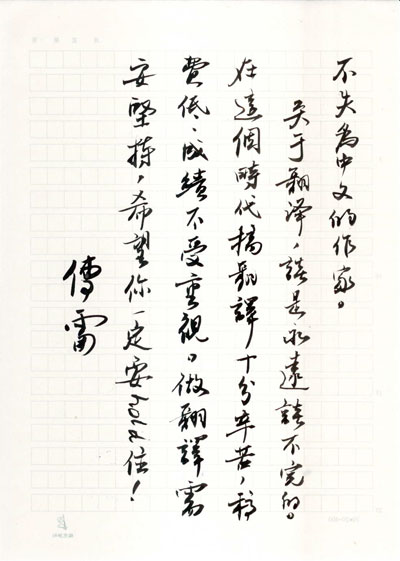 不失為中文的作家。
关于翻译，談是永遠談不完的。
在這個時代搞翻譯十分辛苦，稿
費低、成績不受重視。做翻譯需
要堅持，希望你一定要hold住！
傅雷